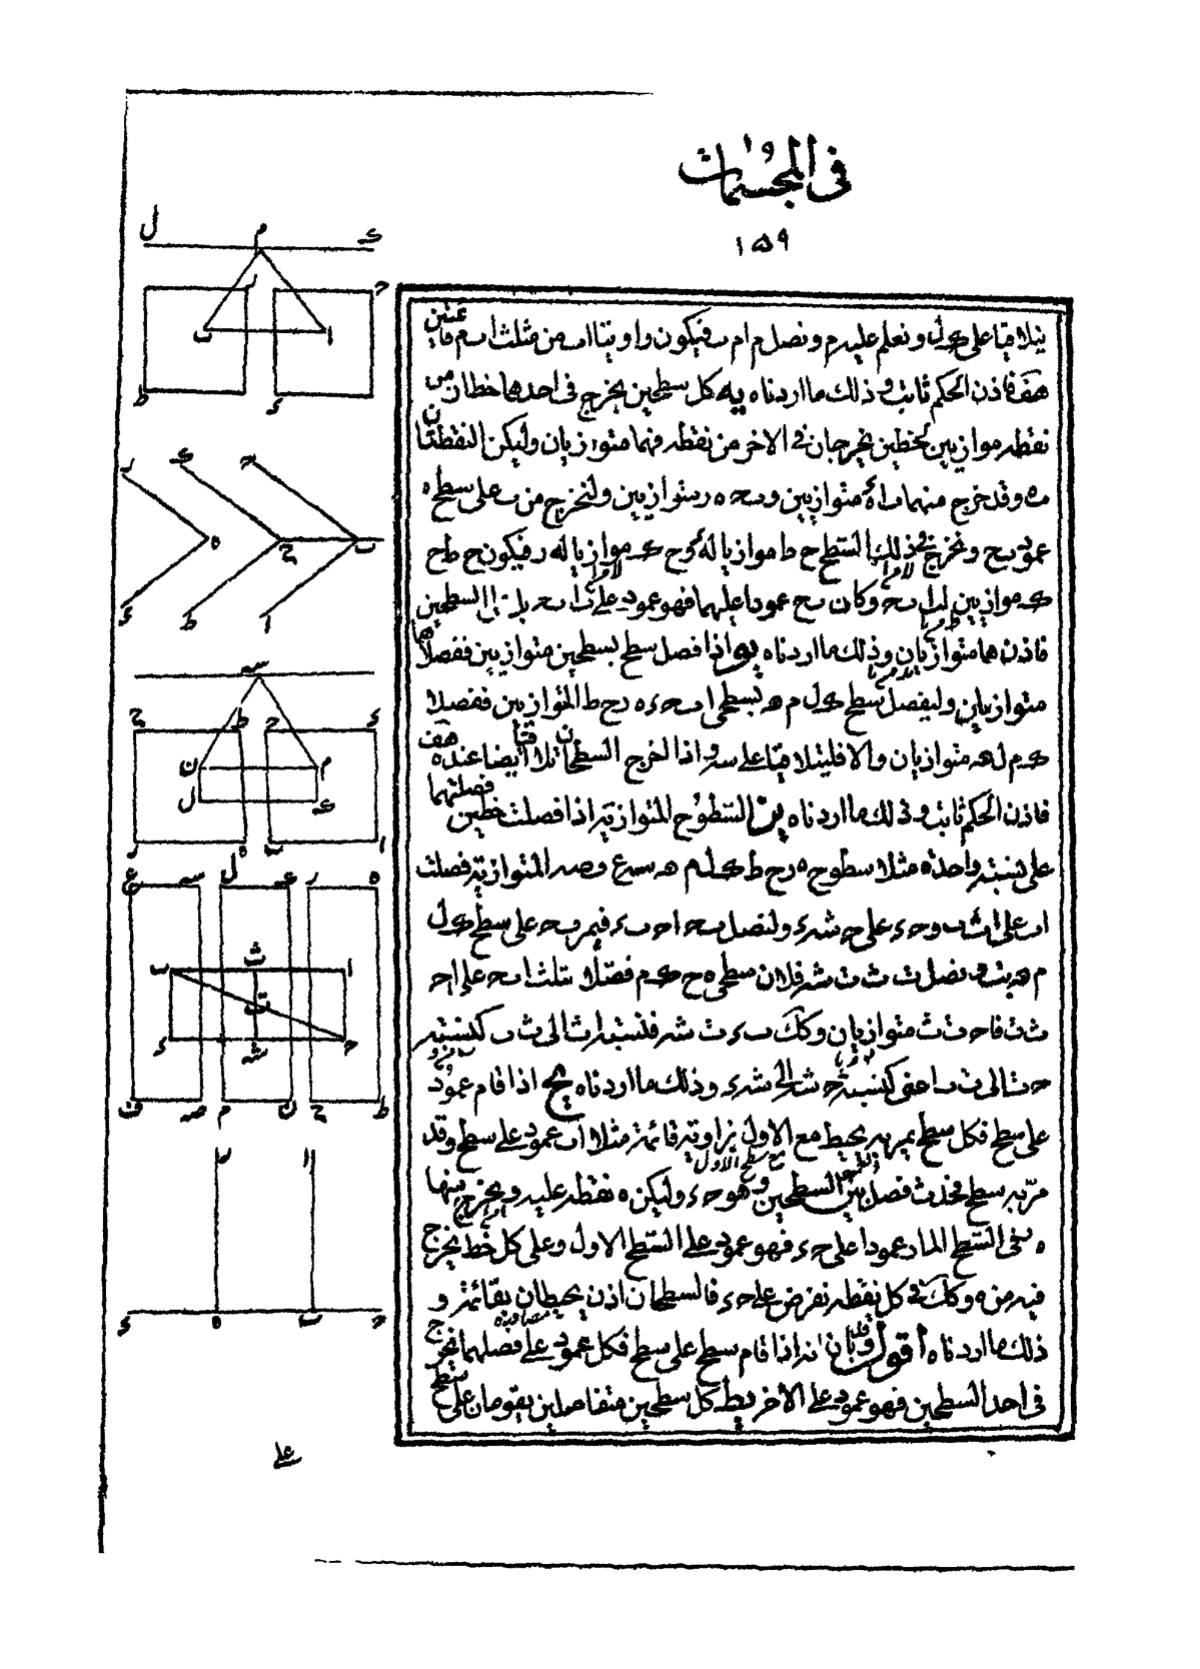 فى المجسمات
١٥٩
يتلاقيا على ك ل ونعلم عليه م ونصل م ا م ب فيكون زاويتا ا ب من مثلث ا ب م قائمتين
هف فاذن الحكم ثابت وذلك ما اردناه يه كل سطحين يخرج فى احدهما خطان من
نقطه موازيين لخطين يخرجان فى الاخر من نقطه فهما متوازيان وليكن النقطتان
ب ه وقد خرج منهما ب ا ه ء متوازيين و ب ح ه ر متوازيين ولنخرج من ب على سطح ه
عمود ب ح ونخرج فى ذلك السطح ح ط موازيا له ء و ح ك موازيا له ر فيكون ح ط ح
ك موازيين لب ا ب ح وكان ب ح عمودا عليهما فهو عمود على ب ا ب ح بل على السطحين
فاذن هما متوازيان وذلك ما اردناه يو اذا فصل سطح بسطحين متوازيين ففصلاهما
متوازيان وليفصل سطح ك ل م ن بسطحى ا ب ح ء ه ر ح ط المتوازيين ففصلا
ك م ل ن متوازيان والا فليتلاقيا على س واذا اخرج السطحان تلاقيا ايضا عنده هف
فاذن الحكم ثابت وذلك ما اردناه يز السطوح المتوازية اذا فصلت خطين فصلتهما
على نسبة واحدة مثلا سطوح ه ر ح ط ك ل م ن س ع ف ص المتوازية فصلت
ا ب على ا ث ب و ح ء على ح ش ء ولنصل ب ح ا ح ب ء فيمر ب ح على سطح ك ل
م ن بت ونصل ث ت ت ش فلان سطحى ه ح ك م فصلا مثلث ا ب ح على ا ح
ث ت فا ح ث ت متوازيان وكك ب ء ت ش فنسبة ا ث الى ث ب كنسبة
ح ت الى ت ب اعنى كنسبة ح ش الى ش ء وذلك ما اردناه يح اذا قام عمود
على سطح فكل سطح يمر به يحيط مع الاول بزاوية قائمة مثلا ا ب عمود على سطح وقد
مر به سطح فحدث فصل بين السطحين وهو ح ء وليكن ه نقطه عليه ويخرج منها
مع سطح الاول
فى السطح المار عمودا على ح ء فهو عمود على السطح الاول وعلى كل خط يخرج
فيه من ه وكك فى كل نقطه نفرض على ح ء فالسطحان اذن يحيطان بقائمة و
ذلك ما اردناه اقول وبان انه اذا قام سطح على سطح فكل عمود على فصلهما يخرج
فى احد السطحين فهو عمود على الآخر يط كل سطحين متفاصلين يقومان على سطح
على
ل م ك
ر ح
ب ا
ط ء
ر ك ح
ه ح ب
ء ط ا
س
ح ط ح ء
ن م
ل ك
ر ه ب ا
ع س ل ع ر ه
ب ث ا
ت
ء ش ح
ف ص م ن ح ط
ب ا
ء ه ب ح